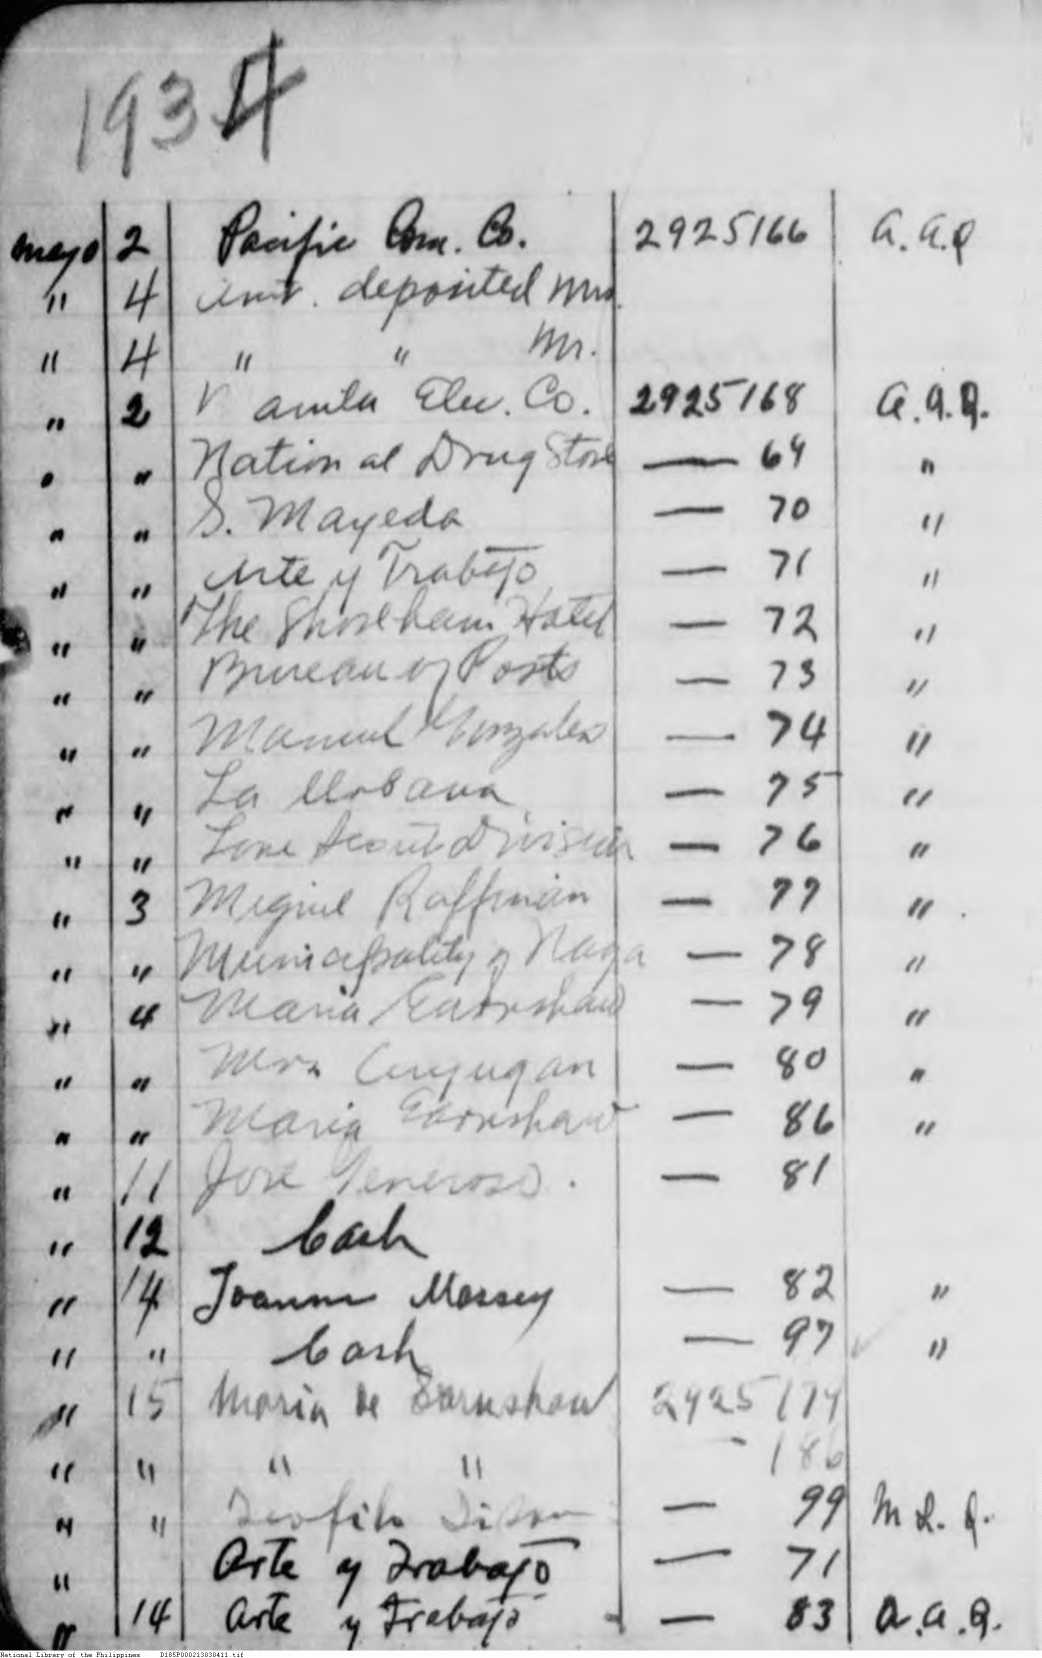 1934
Mayo 2 Pacific Com. Co. 2925166 A.A.Q
" 4 Amt. deposited Mrs.
" 4 " " Mr.
" 2 Manila Elec. Co. 2925168 A.A.Q.
" " National Drug Store — 69 "
" " S. Mayeda — 70 "
" " Arte y Trabajo — 71 "
" " The Shoreham Hotel — 72 "
" " Bureau of Posts — 73 "
" " Manuel Gonzales — 74 "
" " La Urbana — 75 "
" " Lone Scout Division — 76 "
" 3 Miguel Raffinan — 77 "
" " Municipality of Naga — 78 "
" 4 Maria Earnshaw — 79 "
" " Mrs — 80 "
" " Maria Earnshaw — 86 "
" 11 Jose Generoso. — 81
" 12 Cash
" 14 Joanna Massey — 82 "
" " Cash — 97 "
" 15 Maria de Earnshaw 2925179
" " " " — 186
" " Teofilo — 99 M.L.Q.
" Arte y Trabajo — 71
" 14 Arte y Trabajo — 83 A.A.Q.
National Library of the Philippines D185P000213838411.tif